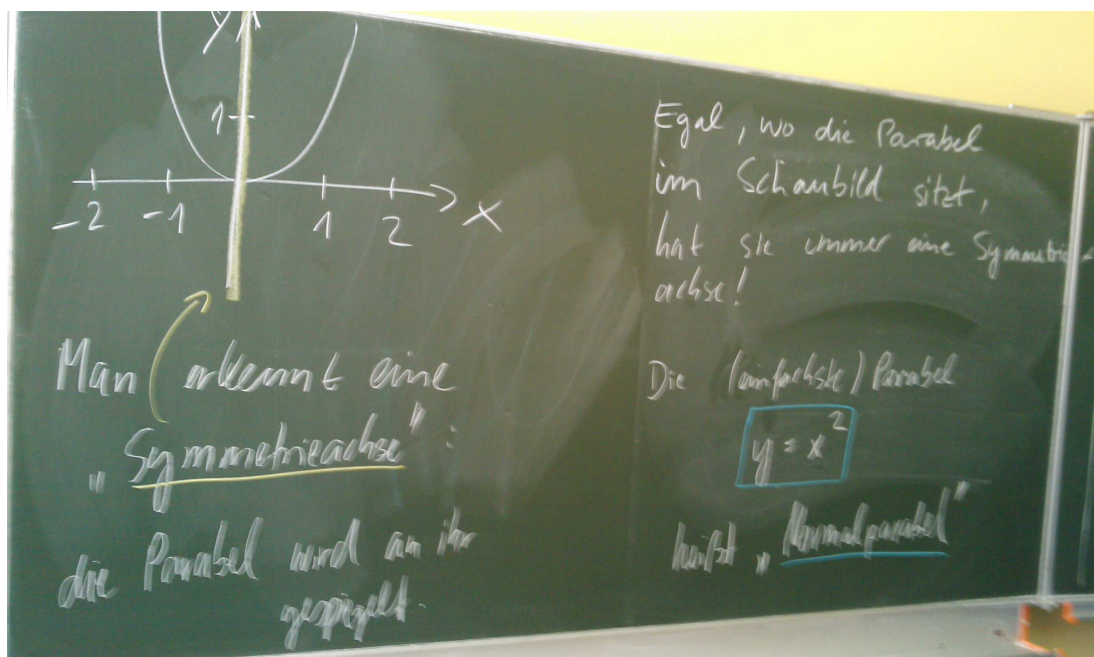 y
1
-2 -1 1 2 x
Man erkennt eine
„Symmetrieachse":
die Parabel wird an ihr
gespiegelt.
Egal, wo die Parabel
im Schaubild sitzt,
hat sie immer eine Symmetrie-
achse!
Die (einfachste) Parabel
y = x²
heißt „Normalparabel"